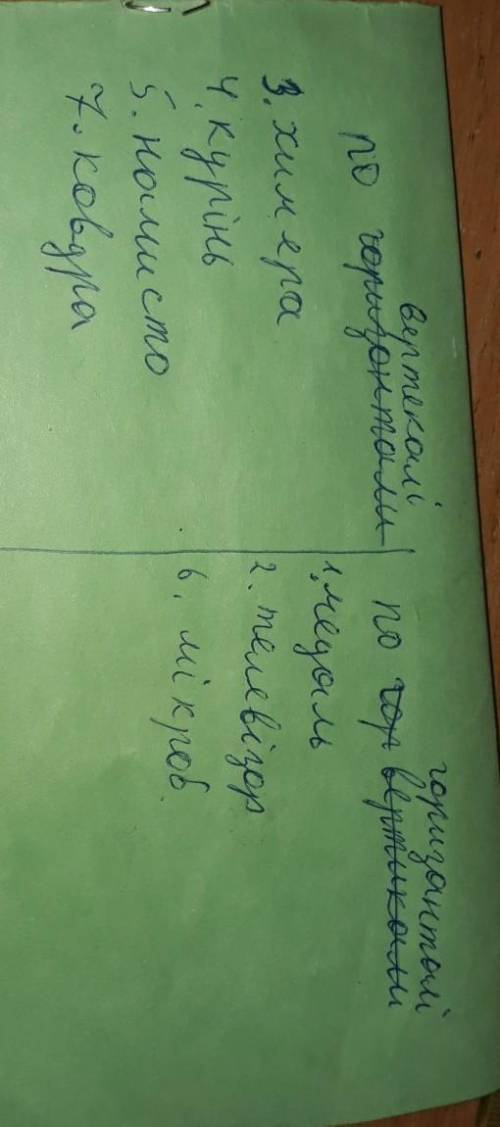 вертекалі
по горизонтали
3. химера
4. курінь
5. намисто
7. ковдра
горизанталі
по гор вертикали
1. медаль
2. телевізор
6. мікроб.